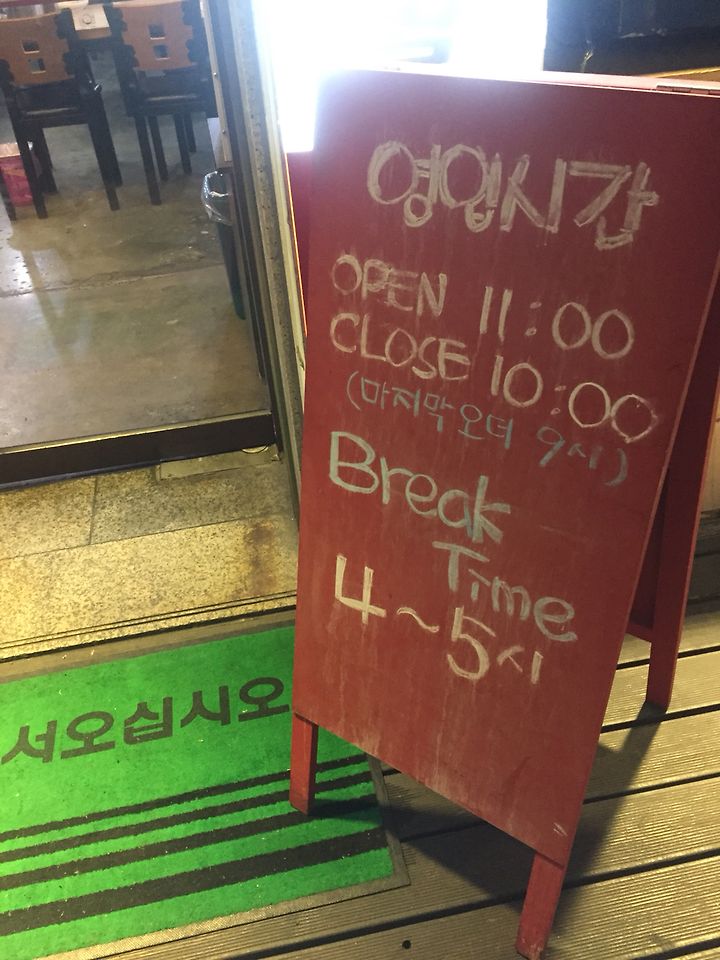 영업시간
OPEN 11:00
CLOSE 10:00
(마지막오더 9시)
Break
Time
4~5시
서오십시오